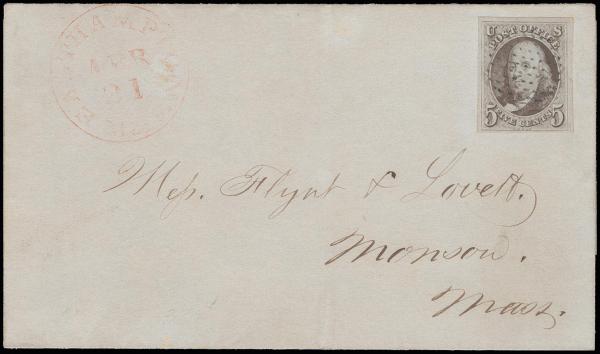 EASTHAMPTON MS.
APR
21
U S
POST OFFICE
5 FIVE CENTS 5
Mess. Flynt & Lovett.
Monson.
Mass.